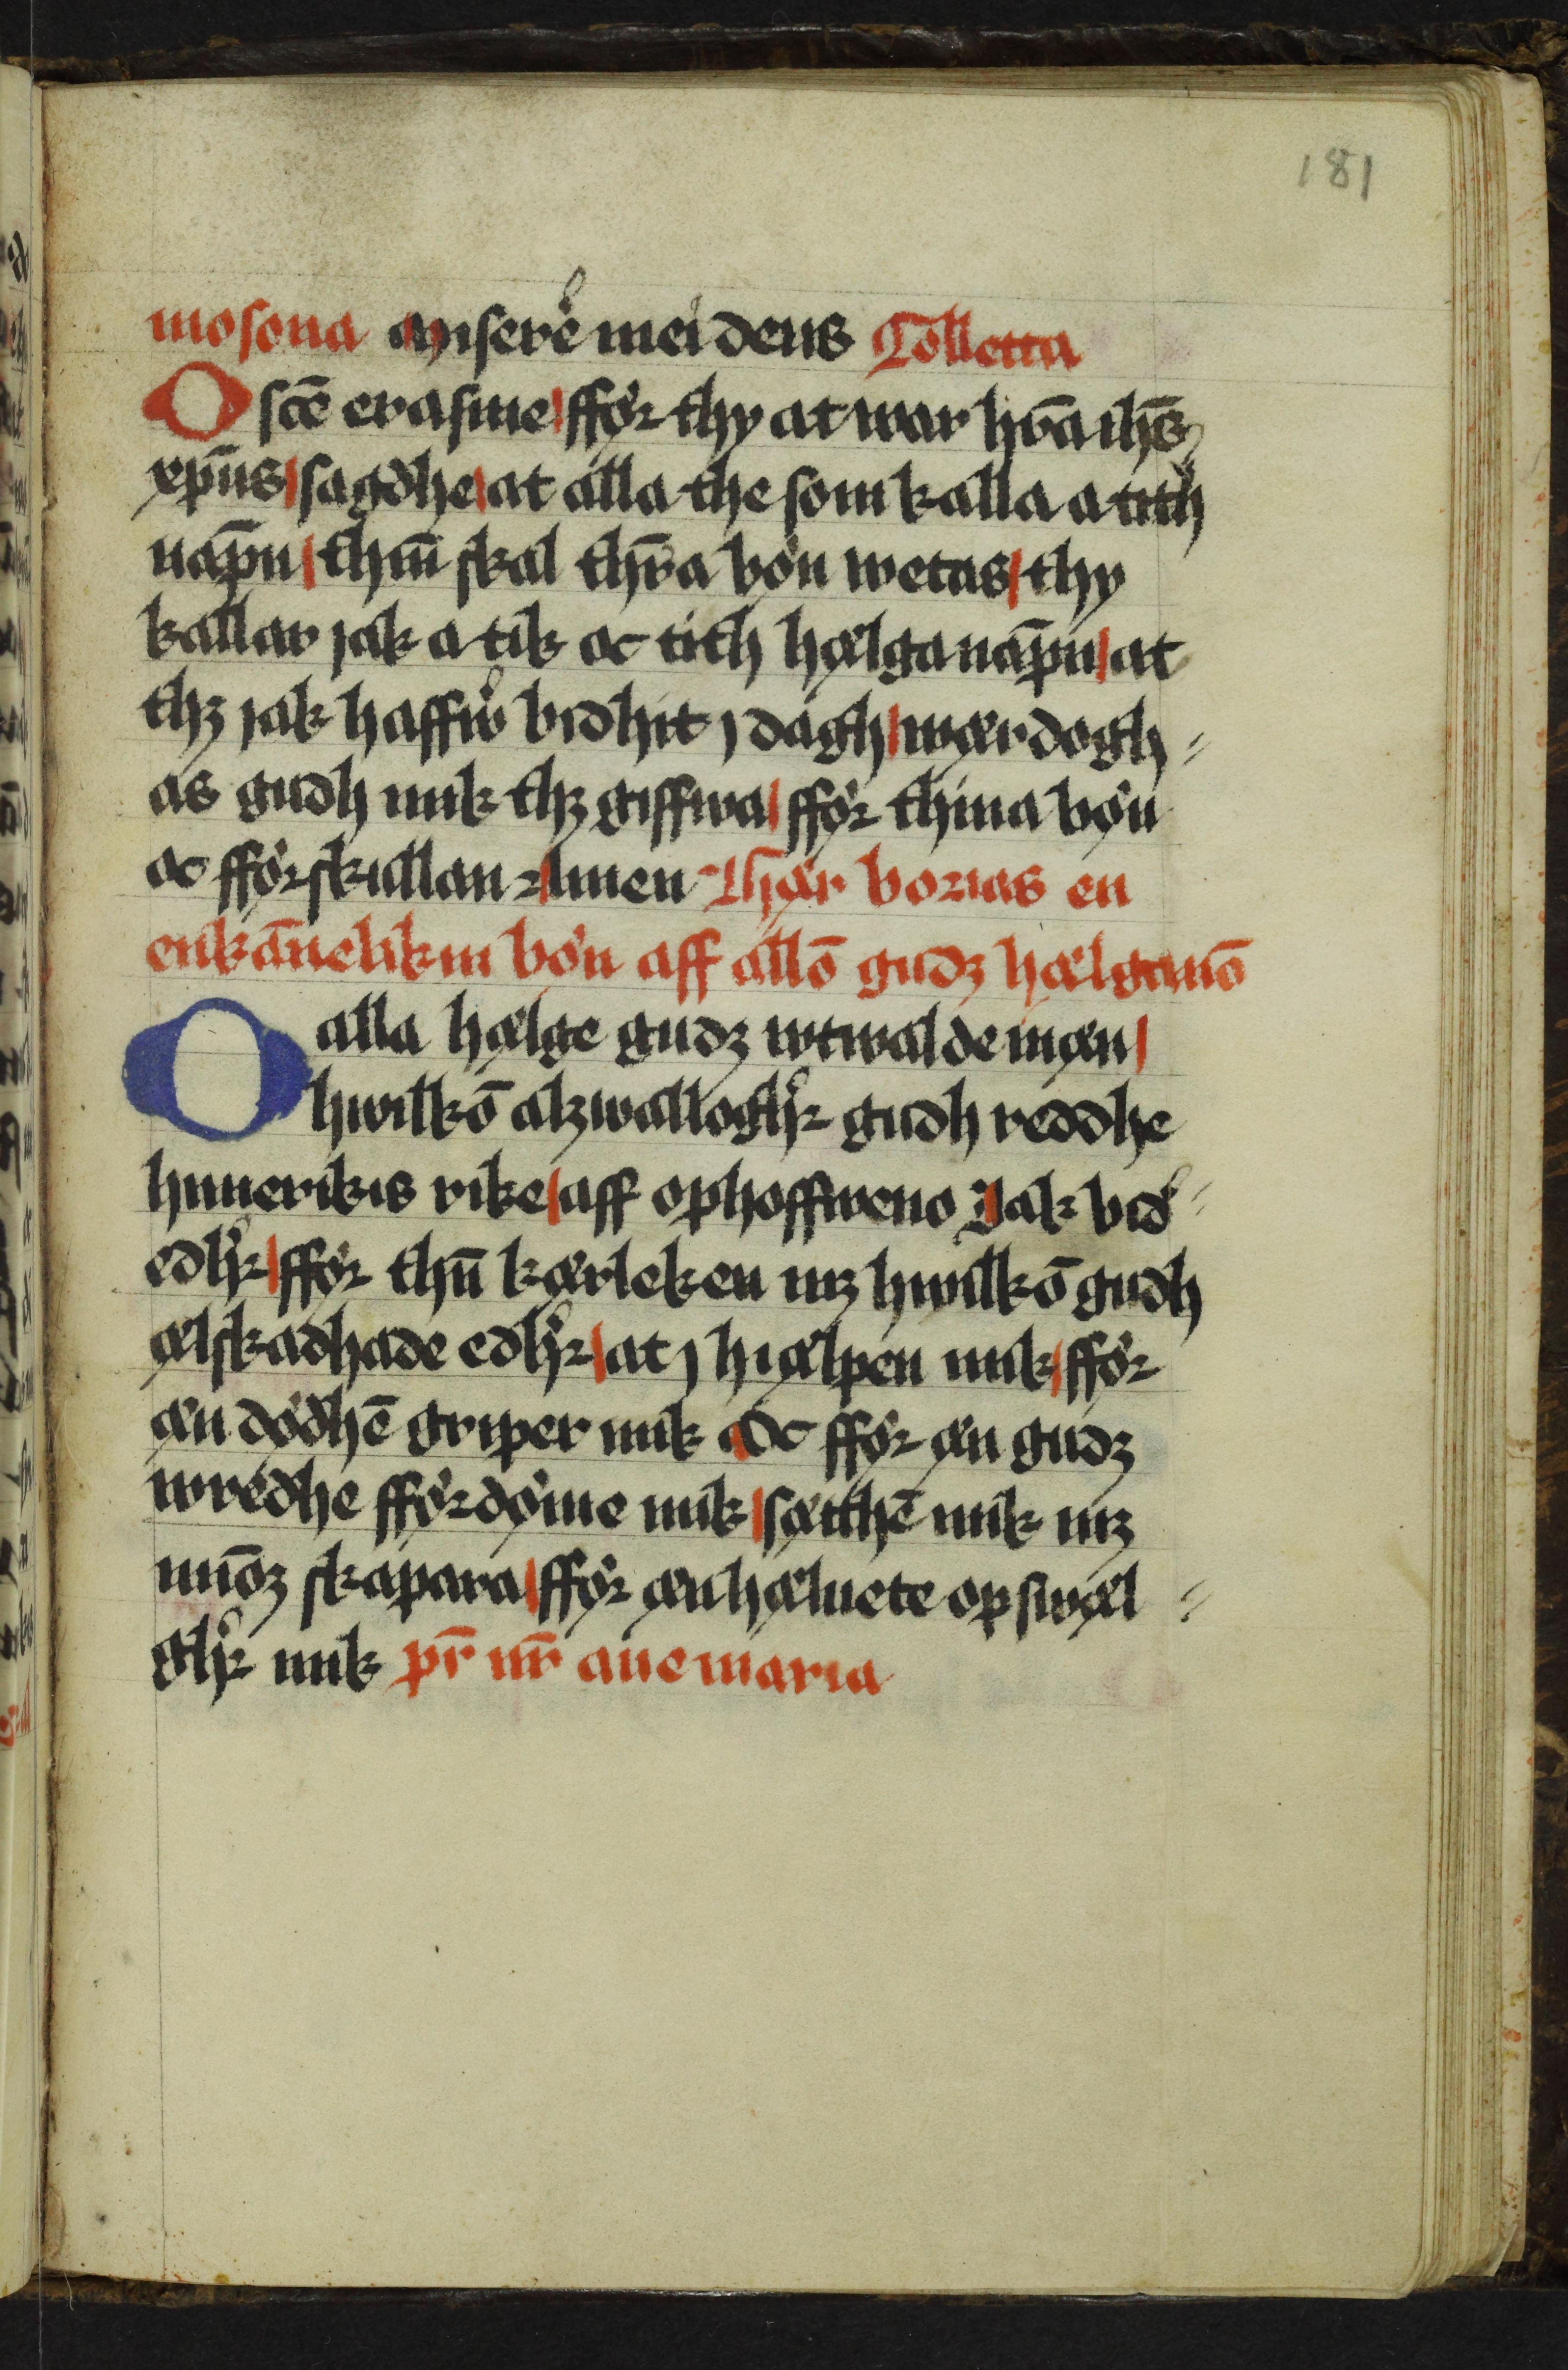 181
mosona Miserē mei deus Collecta
O scē erasme / ffór thy at war hr̄a ihūs
xpūs / sagdhe / at alla the som kalla a tith
nāpn / thm̄ skal thr̄a bön wetas / thy
kallar jak a tik oc tith hælga nāpn / at
thz jak haffw̉ bidhit j dagh / wærdogh=
as gudh mik thz giffwa / ffór thina bön
oc ffórskullan / Amen Thær börias en
enkān̄elikin bön aff allō gudz hælgamō
O alla hælge gudz wtwalde mæn /
hwilkō alzwalloghr̉ gudh reddhe
himerikis rike / aff ophoffweno Jak bid̉=
edhr̉ / ffór thn̄ kærleken mz hwilkō gudh
ælskadhade edhr̉ / at j hiælpen mik / ffór
æn dödhē griper mik Oc ffór æn gudz
wredhe ffórdöme mik / sætthē mik mz
mīōz skapara / ffór æn hæluete opswæl=
ghr̉ mik pr̄ nr̄ aue maria